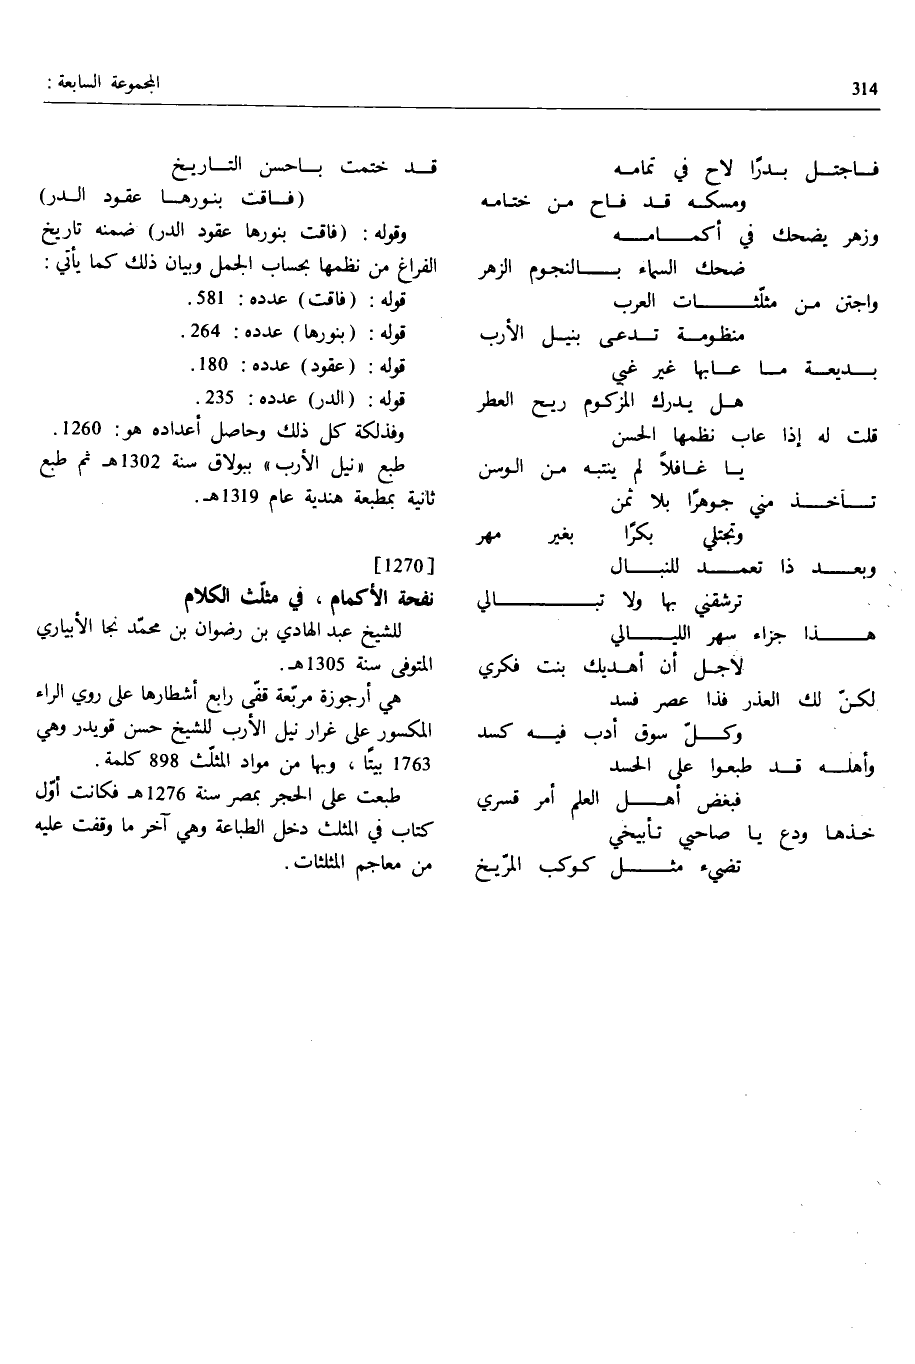 314
المجموعة السابعة :
فاجتل بدرًا لاح في تمامه
ومسكه قد فاح من ختامه
وزهر يضحك في أكمامه
ضحك السماء بالنجوم الزهر
واجتن من مثلّثات العرب
منظومة تدعى بنيل الأرب
بديعة ما عابها غير غبي
هل يدرك المزكوم ريح العطر
قلت له إذا عاب نظمها الحسن
يا غافلاً لم ينتبه من الوسن
تأخذ مني جوهرًا بلا ثمن
وتجتلي بكرًا بغير مهر
وبعد ذا تعمد للنبال
ترشقني بها ولا تبالي
هذا جزاء سهر الليالي
لأجل أن أهديك بنت فكري
لكنّ لك العذر فذا عصر فسد
وكلّ سوق أدب فيه كسد
وأهله قد طبعوا على الحسد
فبغض أهل العلم أمر قسري
خذها ودع يا صاحبي تأبيخي
تضيء مثل كوكب المرّيخ
قد ختمت باحسن التاريخ
(فاقت بنورها عقود الدر)
وقوله : (فاقت بنورها عقود الدر) ضمنه تاريخ
الفراغ من نظمها بحساب الجمل وبيان ذلك كما يأتي :
قوله : (فاقت) عدده : 581 .
قوله : (بنورها) عدده : 264 .
قوله : (عقود) عدده : 180 .
قوله : (الدر) عدده : 235 .
وفذلكة كل ذلك وحاصل أعداده هو : 1260 .
طبع «نيل الأرب» ببولاق سنة 1302هـ ثم طبع
ثانية بمطبعة هندية عام 1319هـ .
[1270]
نفحة الأكمام ، في مثلّث الكلام
للشيخ عبد الهادي بن رضوان بن محمّد نجا الأبياري
المتوفى سنة 1305هـ .
هي أرجوزة مربّعة قفّى رابع أشطارها على روي الراء
المكسور على غرار نيل الأرب للشيخ حسن قويدر وهي
1763 بيتًا ، وبها من مواد المثلّث 898 كلمة .
طبعت على الحجر بمصر سنة 1276هـ فكانت أوّل
كتاب في المثلث دخل الطباعة وهي آخر ما وقفت عليه
من معاجم المثلثات .